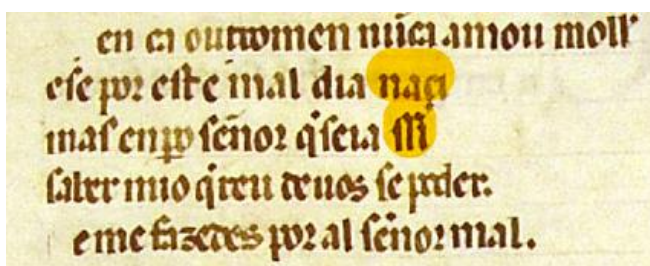 en ca outromen nũca amou moll'
ese por est e mal dia naçi
mas enꝑo señor q̇ seia ssi
saber mio q̇reu de uos se poder.
e me fazedes por al señor mal.